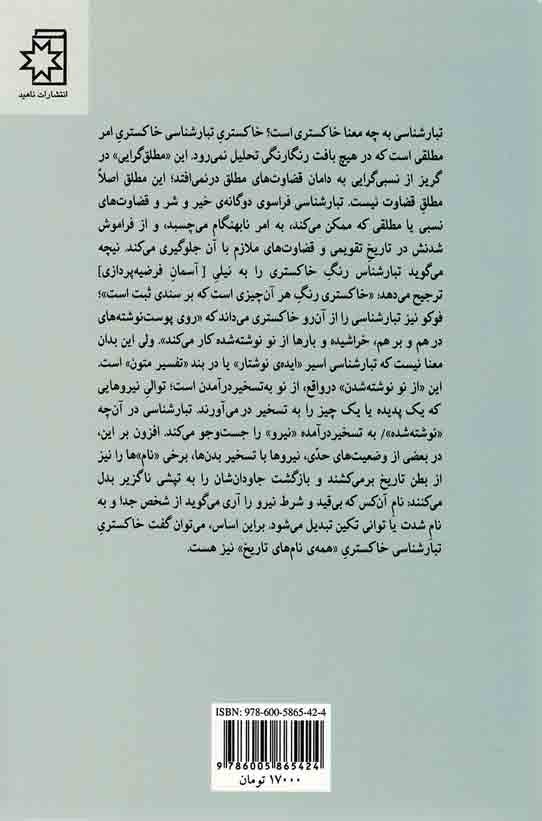 انتشارات ناهید
تبارشناسی به چه معنا خاکستری است؟ خاکستریِ تبارشناسی خاکستریِ امر
مطلقی است که در هیچ بافت رنگارنگی تحلیل نمی‌رود. این «مطلق‌گرایی» در
گریز از نسبی‌گرایی به دامان قضاوت‌های مطلق درنمی‌افتد؛ این مطلق اصلاً
مطلقِ قضاوت نیست. تبارشناسی فراسوی دوگانه‌ی خیر و شر و قضاوت‌های
نسبی یا مطلقی که ممکن می‌کند، به امر نابهنگام می‌چسبد، و از فراموش
شدنش در تاریخِ تقویمی و قضاوت‌های ملازم با آن جلوگیری می‌کند. نیچه
می‌گوید تبارشناس رنگِ خاکستری را به نیلیِ [آسمانِ فرضیه‌پردازی]
ترجیح می‌دهد: «خاکستری رنگِ هر آن‌چیزی است که بر سندی ثبت است»؛
فوکو نیز تبارشناسی را از آن‌رو خاکستری می‌داند که «روی پوست‌نوشته‌های
در هم و بر هم، خراشیده و بارها از نو نوشته‌شده کار می‌کند». ولی این بدان
معنا نیست که تبارشناسی اسیر «ایده‌ی نوشتار» یا در بند «تفسیر متون» است.
این «از نو نوشته‌شدن» درواقع، از نو به‌تسخیردرآمدن است؛ توالیِ نیروهایی
که یک پدیده یا یک چیز را به تسخیر در می‌آورند. تبارشناسی در آن‌چه
«نوشته‌شده»/ به تسخیردرآمده «نیرو» را جست‌وجو می‌کند. افزون بر این،
در بعضی از وضعیت‌های حدّی، نیروها با تسخیر بدن‌ها، برخی «نام»ها را نیز
از بطن تاریخ برمی‌کشند و بازگشت جاودان‌شان را به تپشی ناگزیر بدل
می‌کنند: نام آن‌کس که بی‌قید و شرط نیرو را آری می‌گوید از شخص جدا و به
نام شدت یا توانی تکین تبدیل می‌شود. براین اساس، می‌توان گفت خاکستریِ
تبارشناسی خاکستریِ «همه‌ی نام‌های تاریخ» نیز هست.
ISBN: 978-600-5865-42-4
9 786005 865424
۱۷۰۰۰ تومان